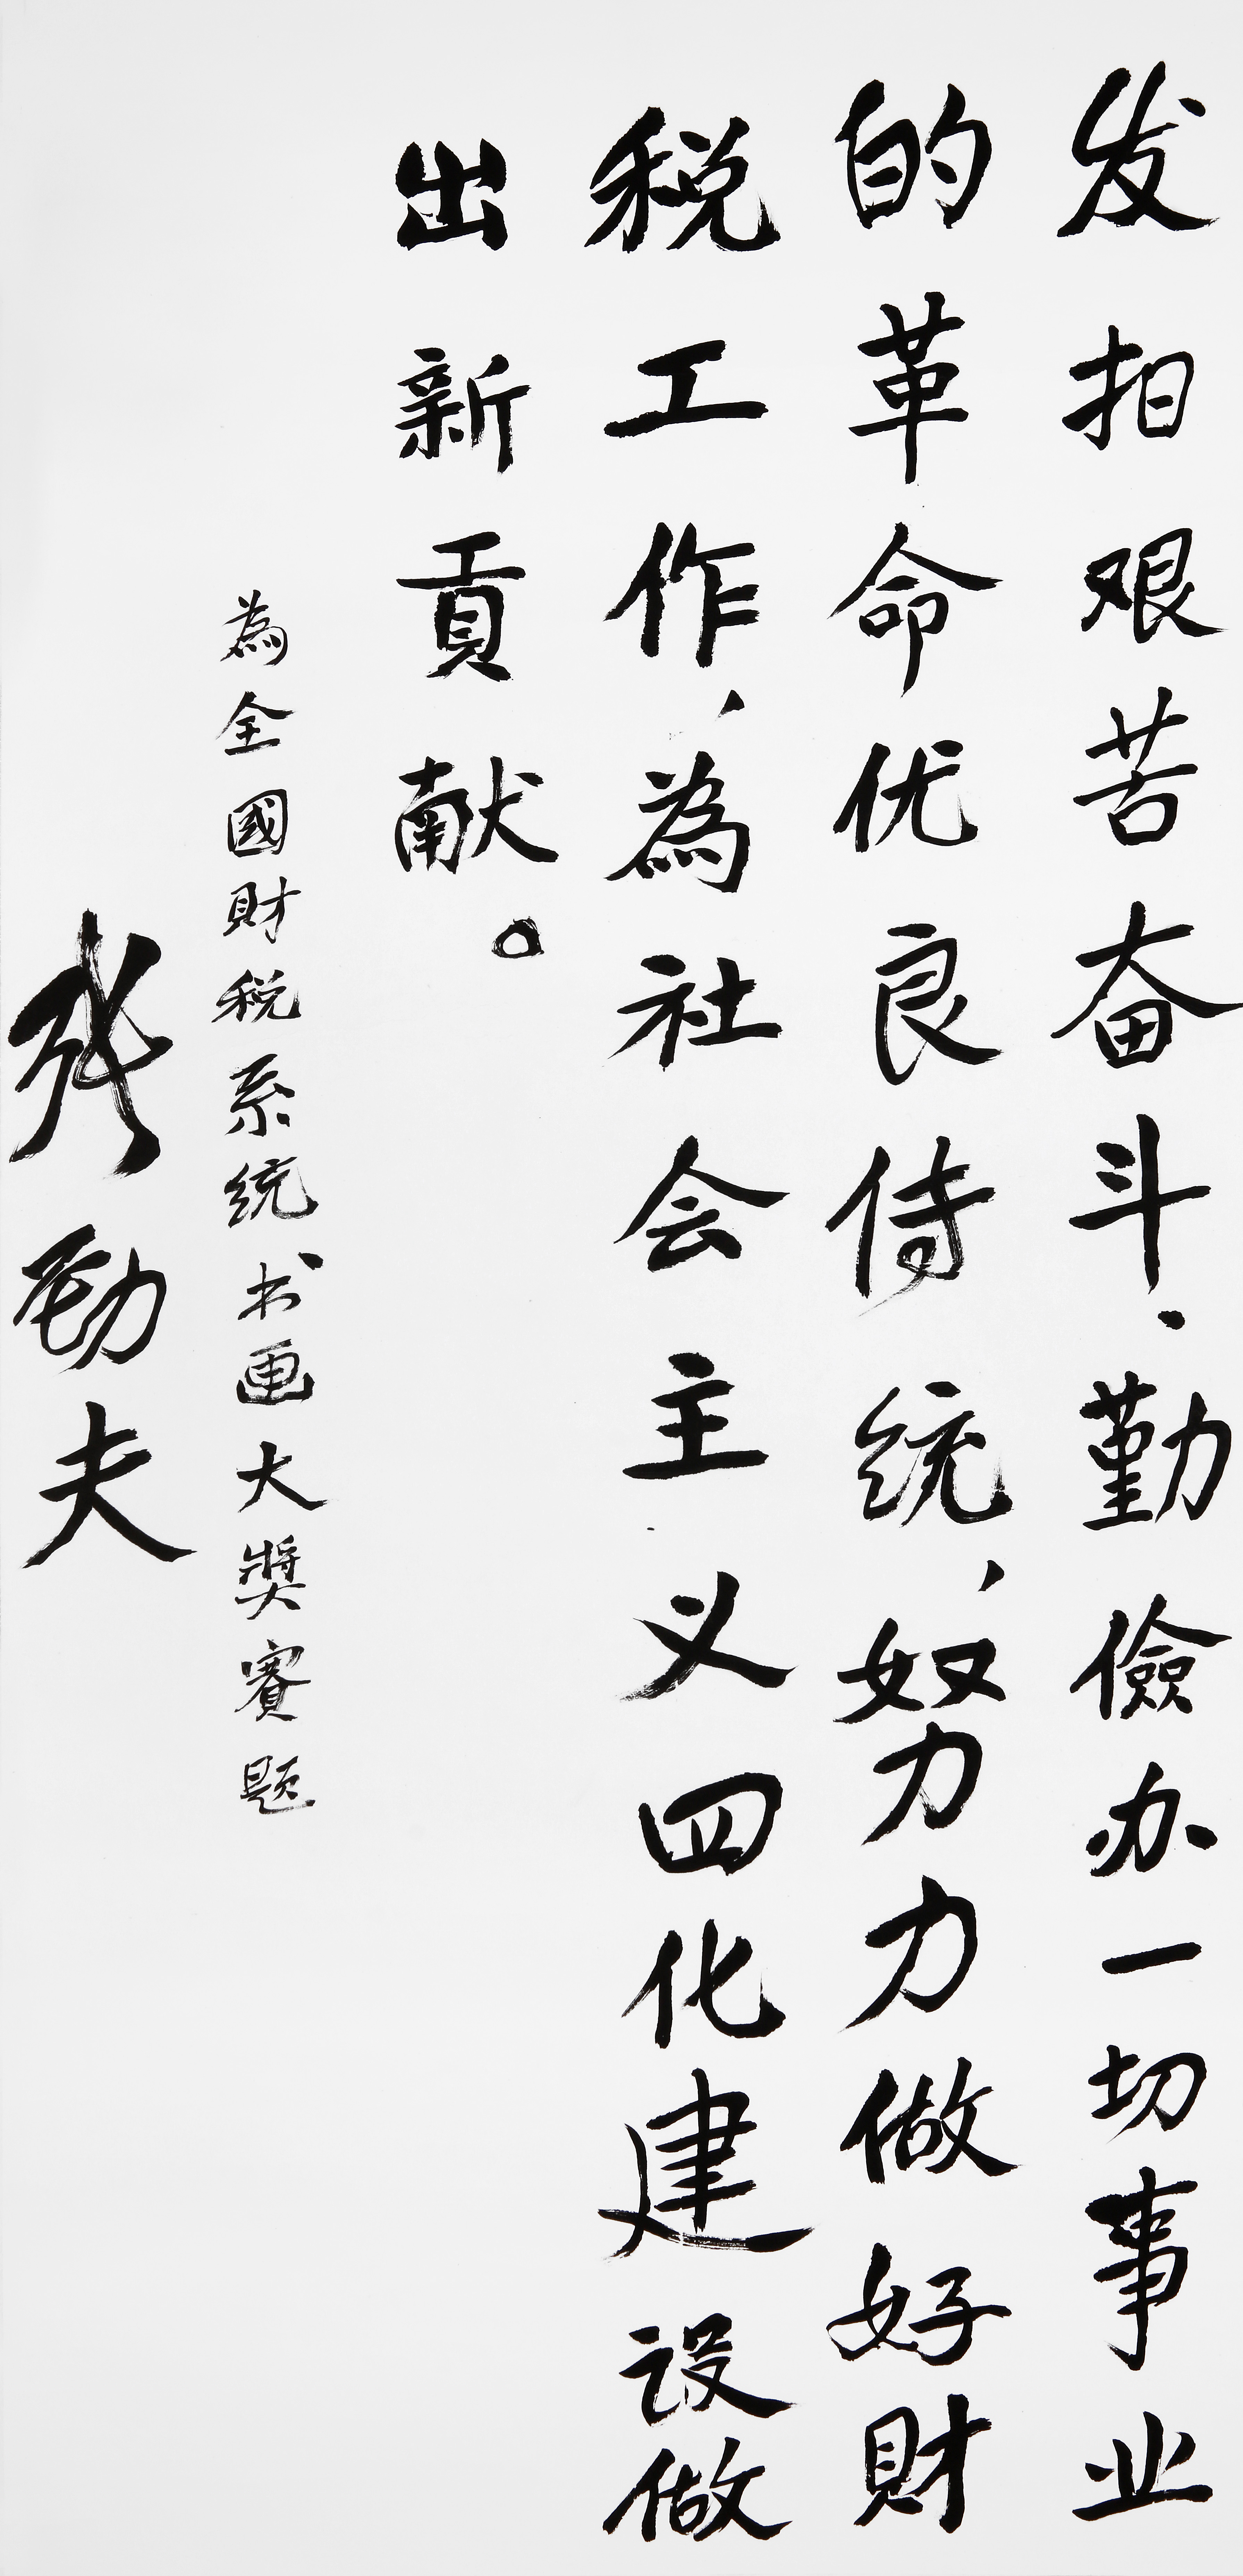 发扬艰苦奋斗、勤儉办一切事业
的革命优良传统，努力做好財
税工作，為社会主义四化建设做
出新貢献。
為全國財税系统书画大奨賽题
张劲夫